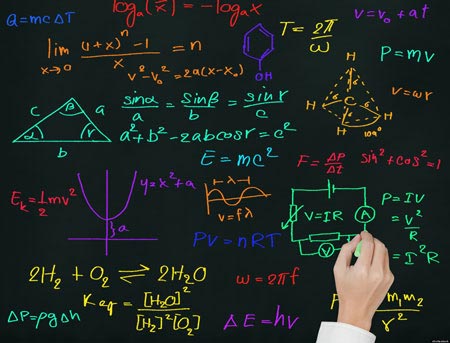 Q=mcΔT
logₐ(x̄) = -logₐx
T = 2π/ω
v=v₀+at
lim x→0 (1+x)ⁿ-1 / x = n
v²-v₀²=2a(x-x₀)
OH
P=mv
H H C H H 109°
v=ωr
c β a α r b
sinα/a = sinβ/b = sinr/c
a²+b²-2abcosr=c²
E=mc²
F=ΔP/Δt
sin²+cos²=1
Eₖ=1/2mv²
y=x²+a
a
λ
v=fλ
V=IR
A
V
P=IV
=V²/R
=I²R
PV=nRT
2H₂+O₂⇌2H₂O
ω=2πf
Keq=[H₂O]²/[H₂]²[O₂]
ΔP=ρgΔh
ΔE=hv
m₁m₂/r²